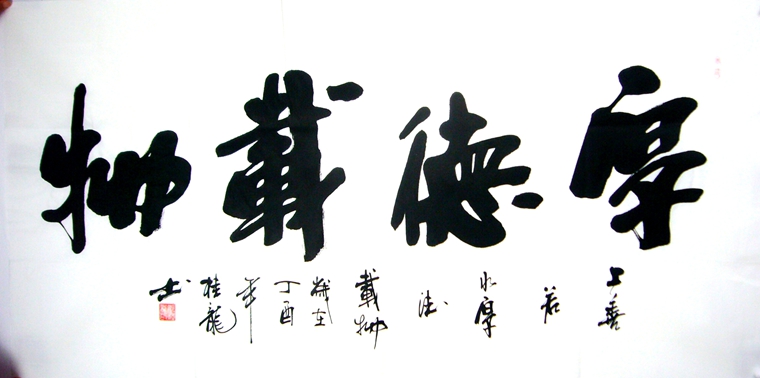 厚德載物
上善若水厚德載物歲在丁酉年桂龍书